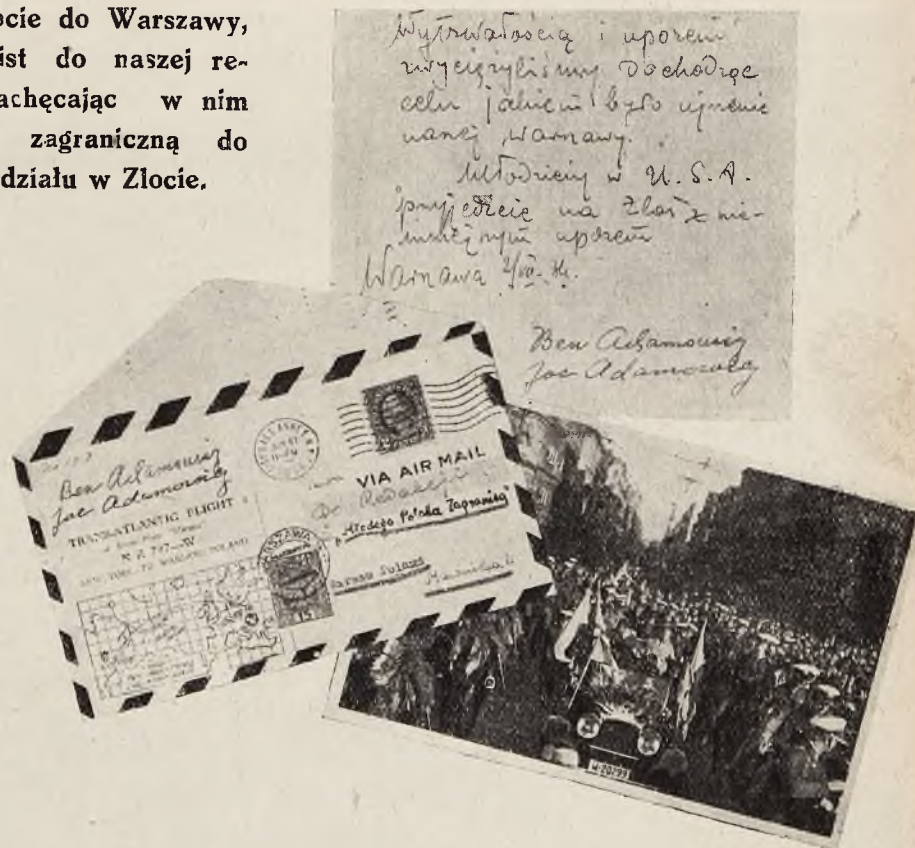 ocie do Warszawy,
ist do naszej re-
achęcając w nim
zagraniczną do
działu w Zlocie.
Wytrwałością i uporem
zwyciężyliśmy dochodząc
celu jakiem było ujrzenie
Warszawy.
Młodzieży w U.S.A.
przyjedźcie na Zlot z nie-
mniejszym uporem
Warszawa
Ben Adamowicz
Joe Adamowicz
Ben Adamowicz
Joe Adamowicz
TRANSATLANTIC FLIGHT
NEW YORK TO WARSAW, POLAND
VIA AIR MAIL
Do Redakcji
"Młodego Polaka Zagranicą"
WARSZAWA
15
Warsaw Poland
W-20799